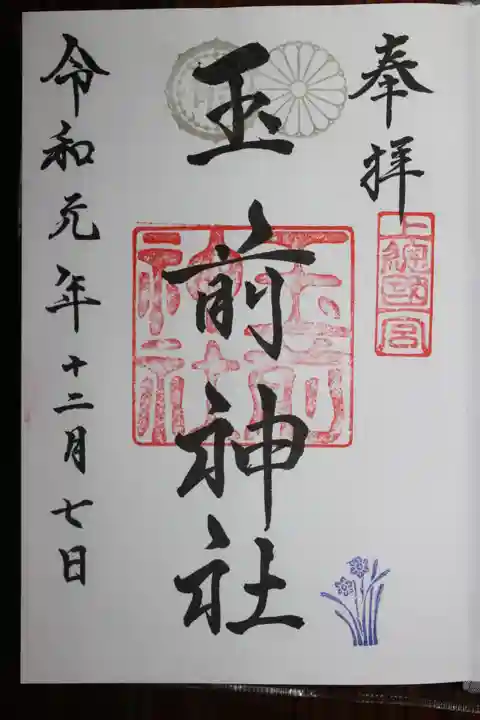 奉拝
上總國一宮
玉前神社
玉前神社
令和元年十二月七日